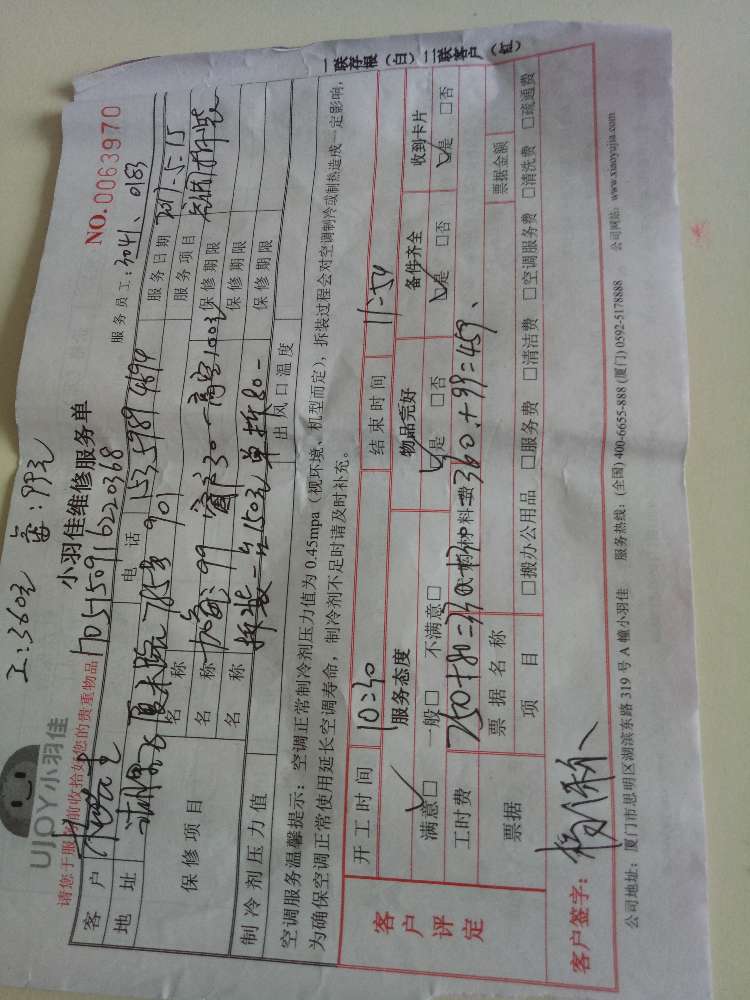 工:360元 氟:99元
UJOY小羽佳
小羽佳维修服务单
NO.0063970
请您于服务前收拾好您的贵重物品
服务员工:3041、0183
客户 电话 15359894894 服务日期
地址 901 服务项目
保修项目 名称 加氟:99 高空100元 保修期限
名称 保修期限
名称 拆装一台150元 单拆80- 保修期限
制冷剂压力值 出风口温度
空调服务温馨提示:空调正常制冷剂压力值为0.45mpa(视环境、机型而定),拆装过程会对空调制冷或制热造成一定影响,
为确保空调正常使用延长空调寿命,制冷剂不足时请及时补充。
客户评定
开工时间 10:30 结束时间 11:54
服务态度 物品完好 备件齐全 收到卡片
满意□ 一般□ 不满意□ □是 □否 □是 □否 □是 □否
工时费 材料费 =360+99=459
票据 票据名称 票据金额
项目 □搬办公用品 □服务费 □清洁费 □空调服务费 □清洗费 □疏通费
客户签字:
公司地址:厦门市思明区湖滨东路319号A幢小羽佳 服务热线:(全国)400-6655-888(厦门)0592-5178888 公司网站:www.xiaoyujia.com
一联存根(白)二联客户(红)